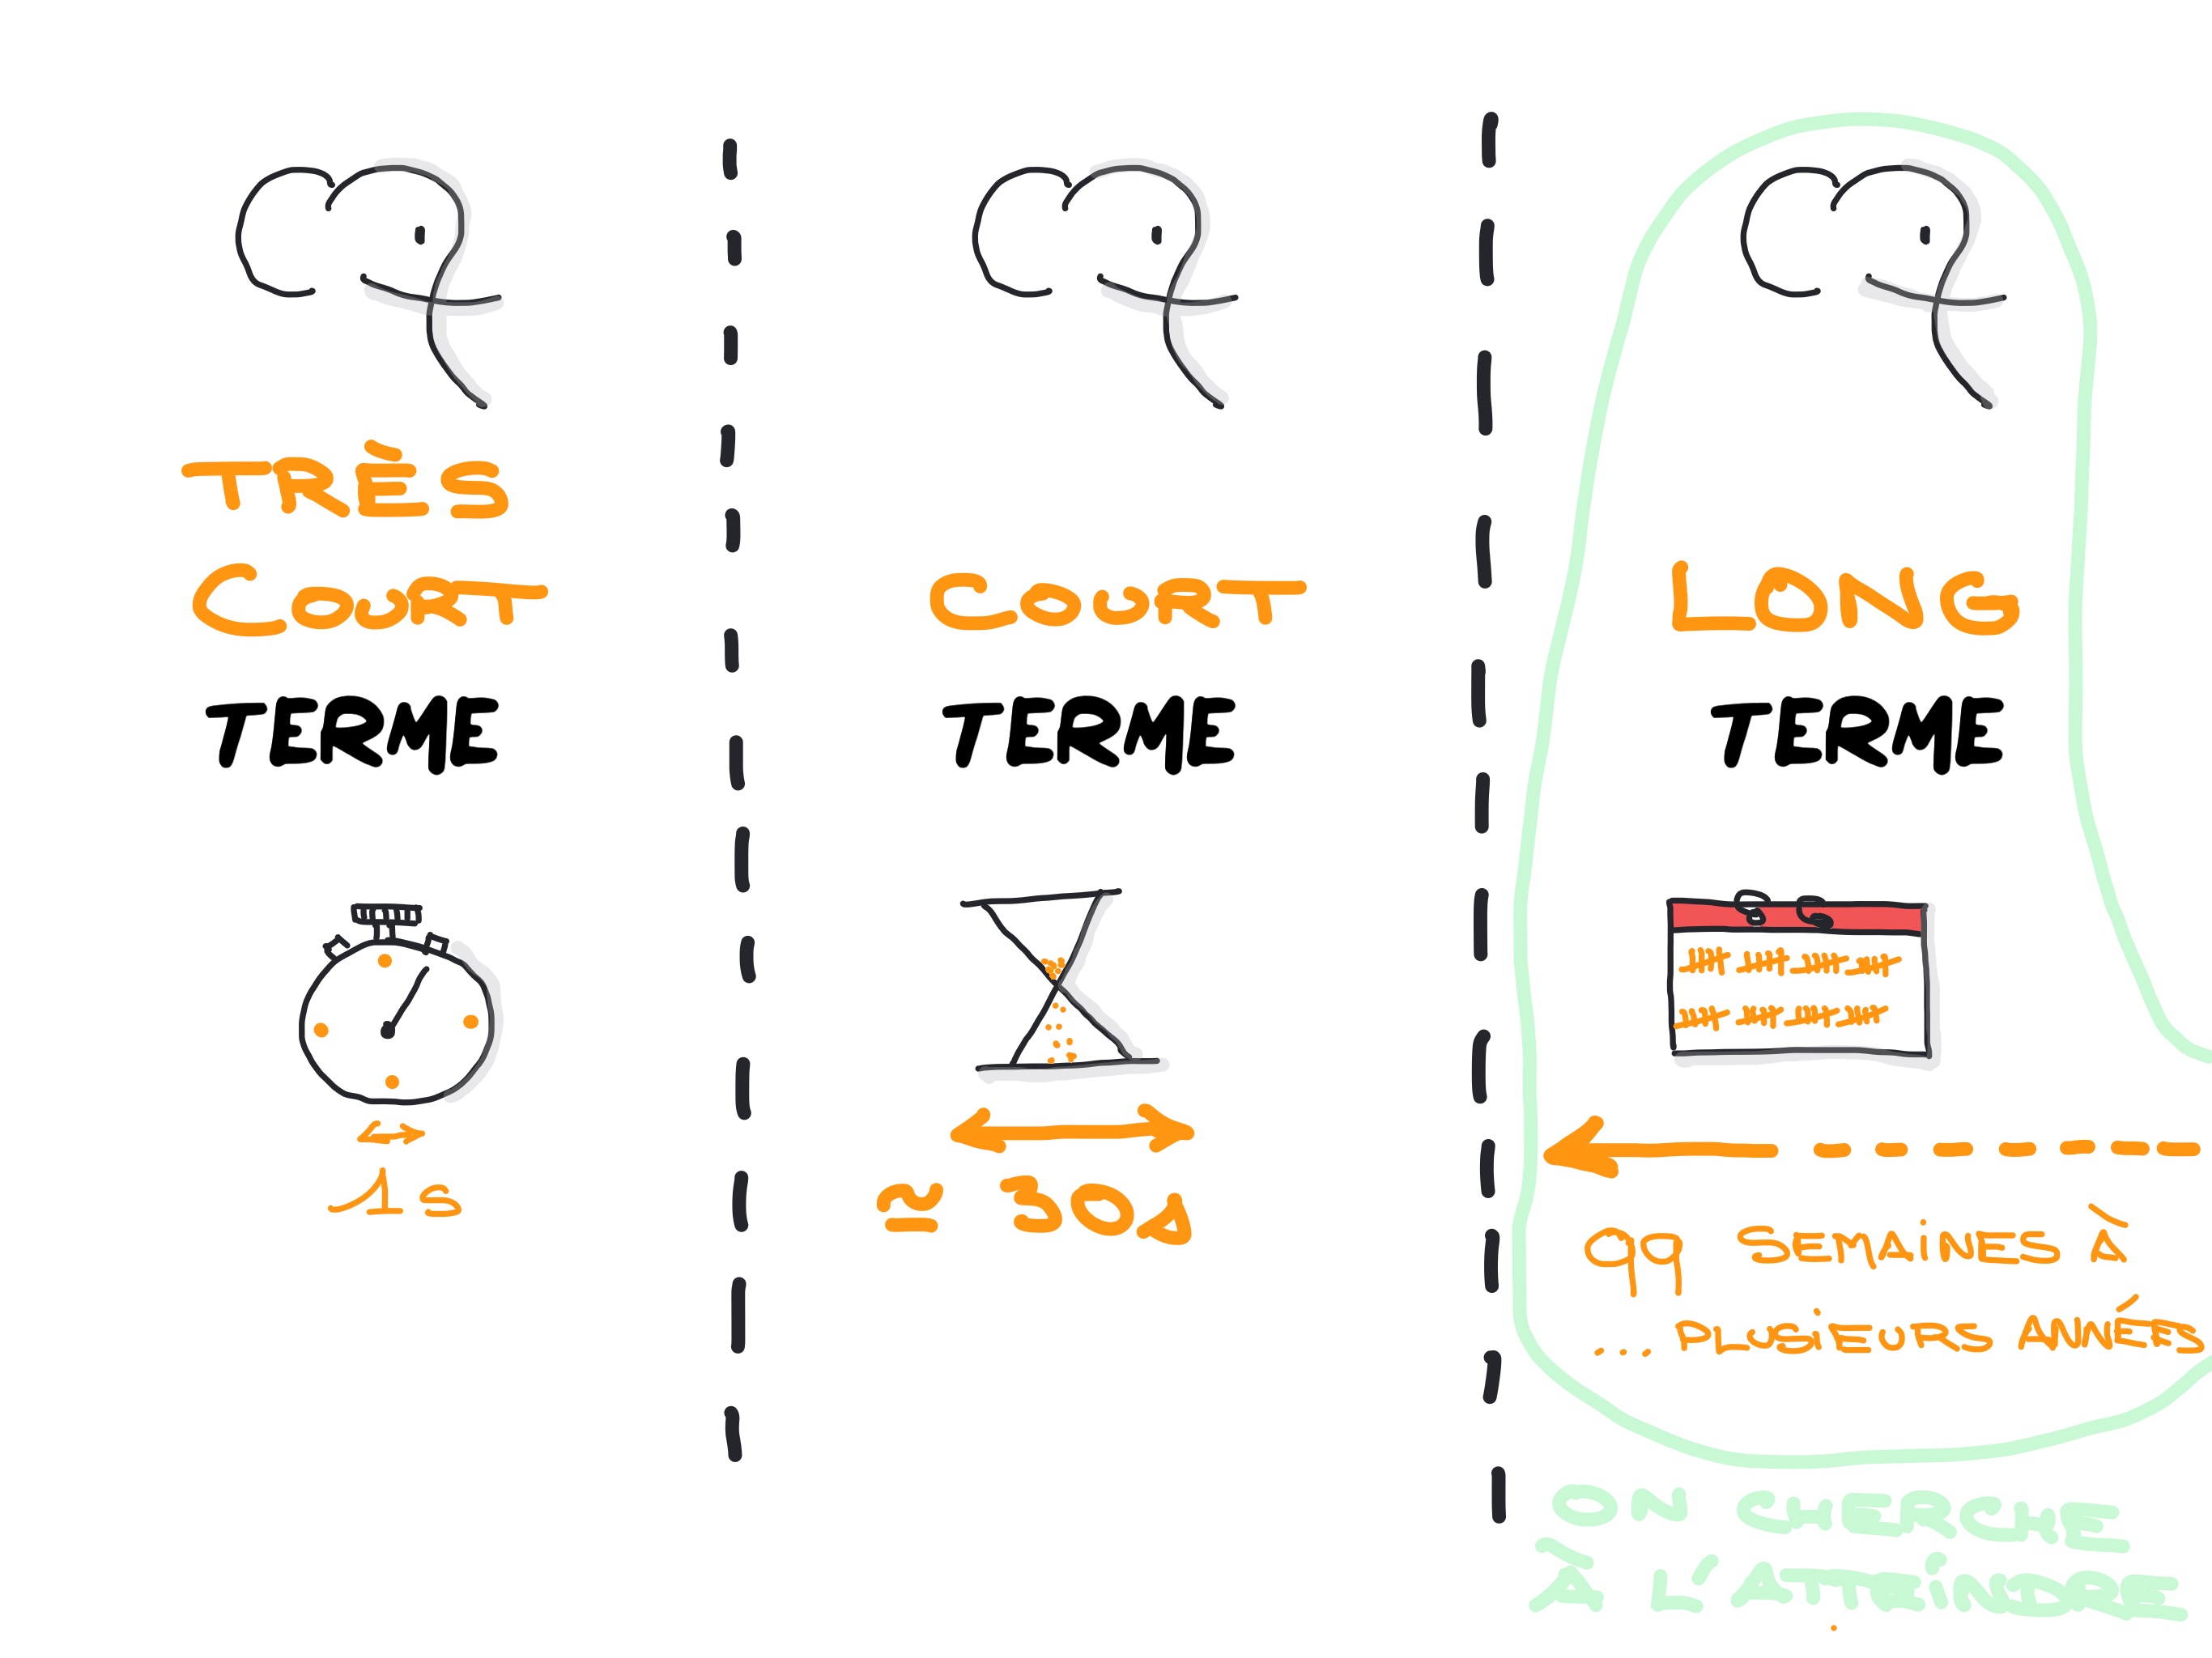 TRÈS
COURT
TERME
1s
COURT
TERME
≃ 30s
LONG
TERME
qq SEMAINES À
... PLUSIEURS ANNÉES
ON CHERCHE
À L'ATTEINDRE